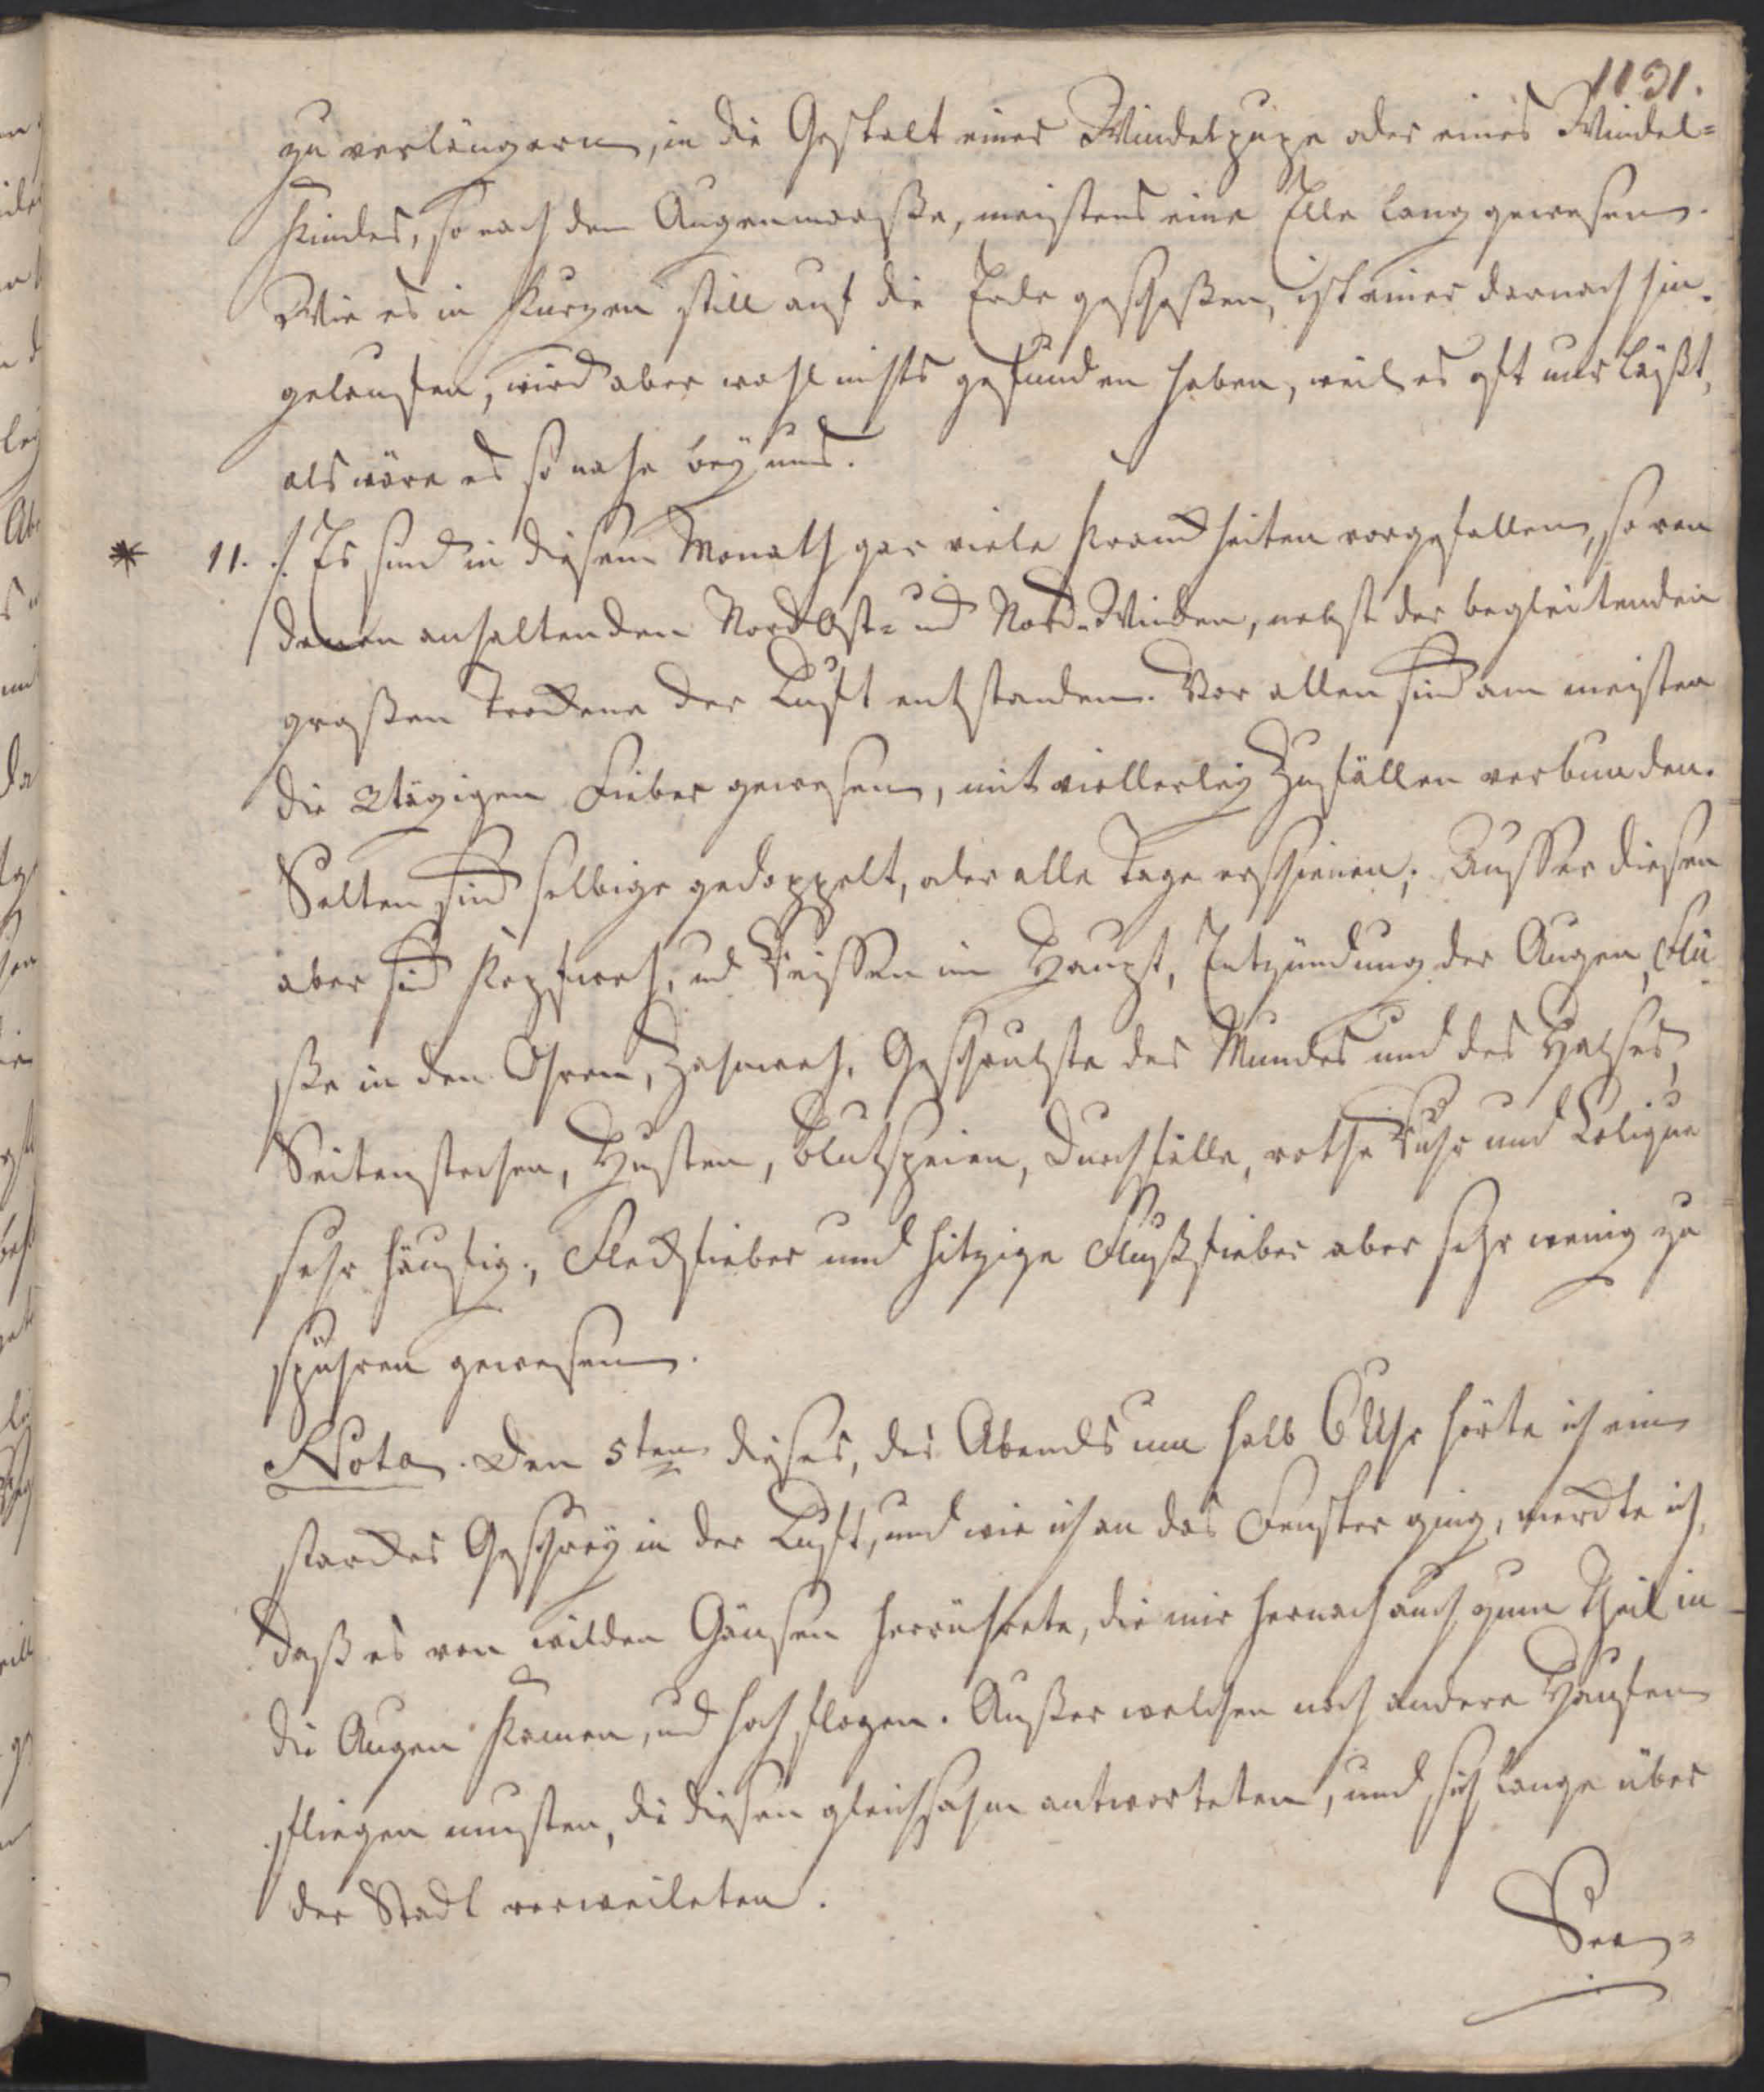 1131.
zu verlängern, in die Gestalt einer Windelpupe oder eines Windel=
Kindes, so nach dem Augenmaaße, meistens eine Elle lang gewesen.
Wie es in Kurzen still auf die Erde geschoßen, ist einer darnach hin=
gelaufen, wird aber wohl nichts gefunden haben, weil es oft nur läßt,
als wäre es so nahe bey uns.
* 11. ./. Es sind in diesem Monath gar viele Kranckheiten vorgefallen, so von
denen anhaltenden NordOst= und Nord-Winden, nebst der begleitenden
großen Trockene der Luft entstanden. Vor allen sind am meisten
die 3tägigen Fieber gewesen, mit viellerley Zufällen verbunden.
Selten sind selbige gedoppelt, oder alle Tage erschienen; Ausser diesen
aber sind Kopfweh, und Reissen im Haupt, Entzündung der Augen, Flü
ße in den Ohren, Zahnweh, Geschwulste des Mundes und des Halses,
Seitenstechen, Husten, Blutspeien, Durchfälle, rothe Ruhr und Colique
sehr häufig, Fleckfieber und hitzige Flußfieber aber sehr wenig zu
spühren gewesen.
Nota. Den 5ten dieses, des Abends um halb 6 Uhr hörte ich ein
starckes Geschrey in der Luft, und wie ich an das Fenster ging, merckte ich,
daß es von wilden Gänsen herrührete, die mir hernach auch zum Theil in
die Augen kamen, und hoch flogen. Außer welchen noch andere Haufen
fliegen musten, die diesen gleichsahm antworteten, und sich lange über
der Stadt verweileten.